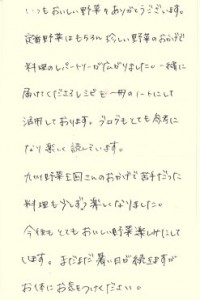 いつもおいしい野菜をありがとうございます。
定番野菜はもちろん珍しい野菜のおかげで
料理のレパートリーが広がりました。一緒に
届けてくださるレシピも一冊のノートにして
活用しております。ブログもとても参考に
なり楽しく読んでいます。
九州野菜王国さんのおかげで苦手だった
料理も少しずつ楽しくなりました。
今後もとてもおいしい野菜楽しみにして
います。まだまだ暑い日が続きますが
お体にお気をつけください。